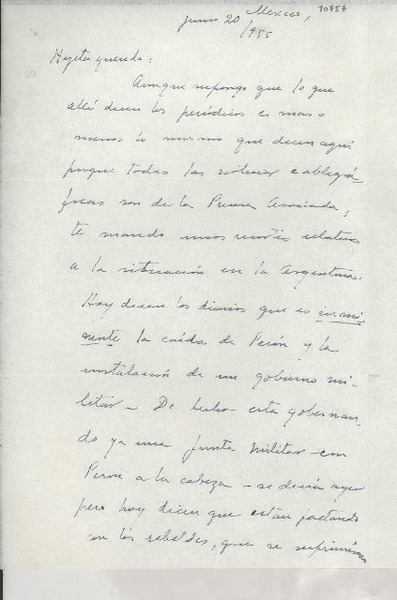 10754
Mexico,
junio 20 /955
Hijita querida:
Aunque supongo que lo que
allá dicen los periódicos es mas o
menos lo mismo que dicen aquí
porque todas las noticias cablegrá-
ficas son de la Prensa Asociada,
te mando unos recortes relativos
a la situación en la Argentina.
Hoy dicen los diarios que es inmi-
nente la caída de Perón y la
instalación de un gobierno mi-
litar - De hecho está gobernan-
do ya una junta militar - con
Peron a la cabeza - se decía ayer
pero hoy dicen que están pactando
con los rebeldes, que se suprimieron